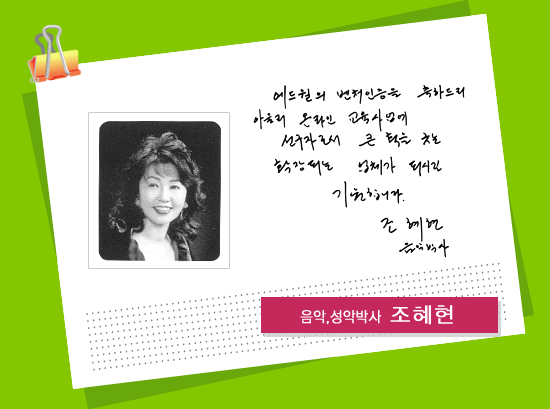 에드윌의 벤처인증을 축하드리
아울러 온라인 교육사업에
선구자로서 큰 획을 긋는
확장되는 업체가 되시길
기원합니다.
조 혜현
음악박사
음악,성악박사 조혜현